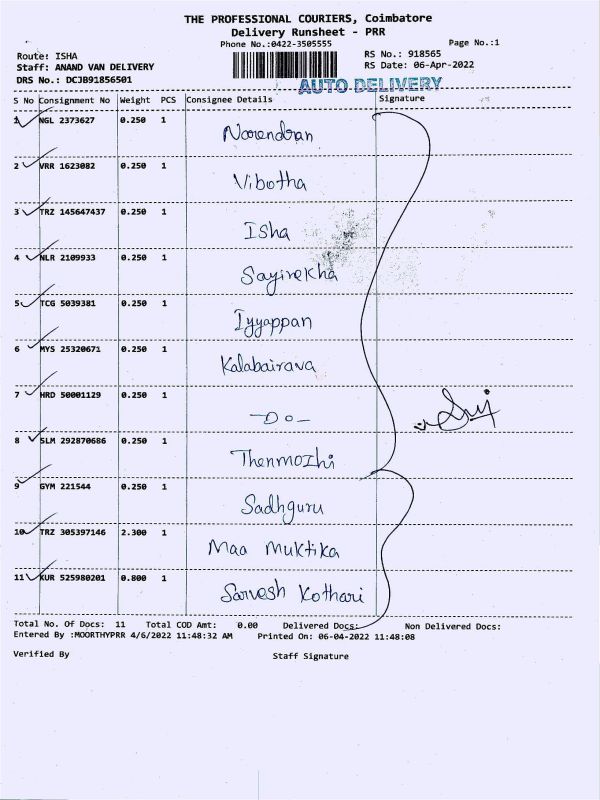 THE PROFESSIONAL COURIERS, Coimbatore
Delivery Runsheet - PRR
Phone No.:0422-3505555 Page No.:1
Route: ISHA RS No.: 918565
Staff: ANAND VAN DELIVERY RS Date: 06-Apr-2022
DRS No.: DCJB91856501
AUTO DELIVERY
S No Consignment No Weight PCS Consignee Details Signature
1 NGL 2373627 0.250 1 Narendran
2 VRR 1623082 0.250 1 Vibotha
3 TRZ 145647437 0.250 1 Isha
4 NLR 2109933 0.250 1 Sayirekha
5 TCG 5039381 0.250 1 Iyyappan
6 MYS 25320671 0.250 1 Kalabairava
7 HRD 50001129 0.250 1 -Do-
8 SLM 292870686 0.250 1 Thenmozhi
9 GYM 221544 0.250 1 Sadhguru
10 TRZ 305397146 2.300 1 Maa Muktika
11 KUR 525980201 0.800 1 Sarvesh Kothari
Total No. Of Docs: 11 Total COD Amt: 0.00 Delivered Docs: Non Delivered Docs:
Entered By :MOORTHYPRR 4/6/2022 11:48:32 AM Printed On: 06-04-2022 11:48:08
Verified By Staff Signature